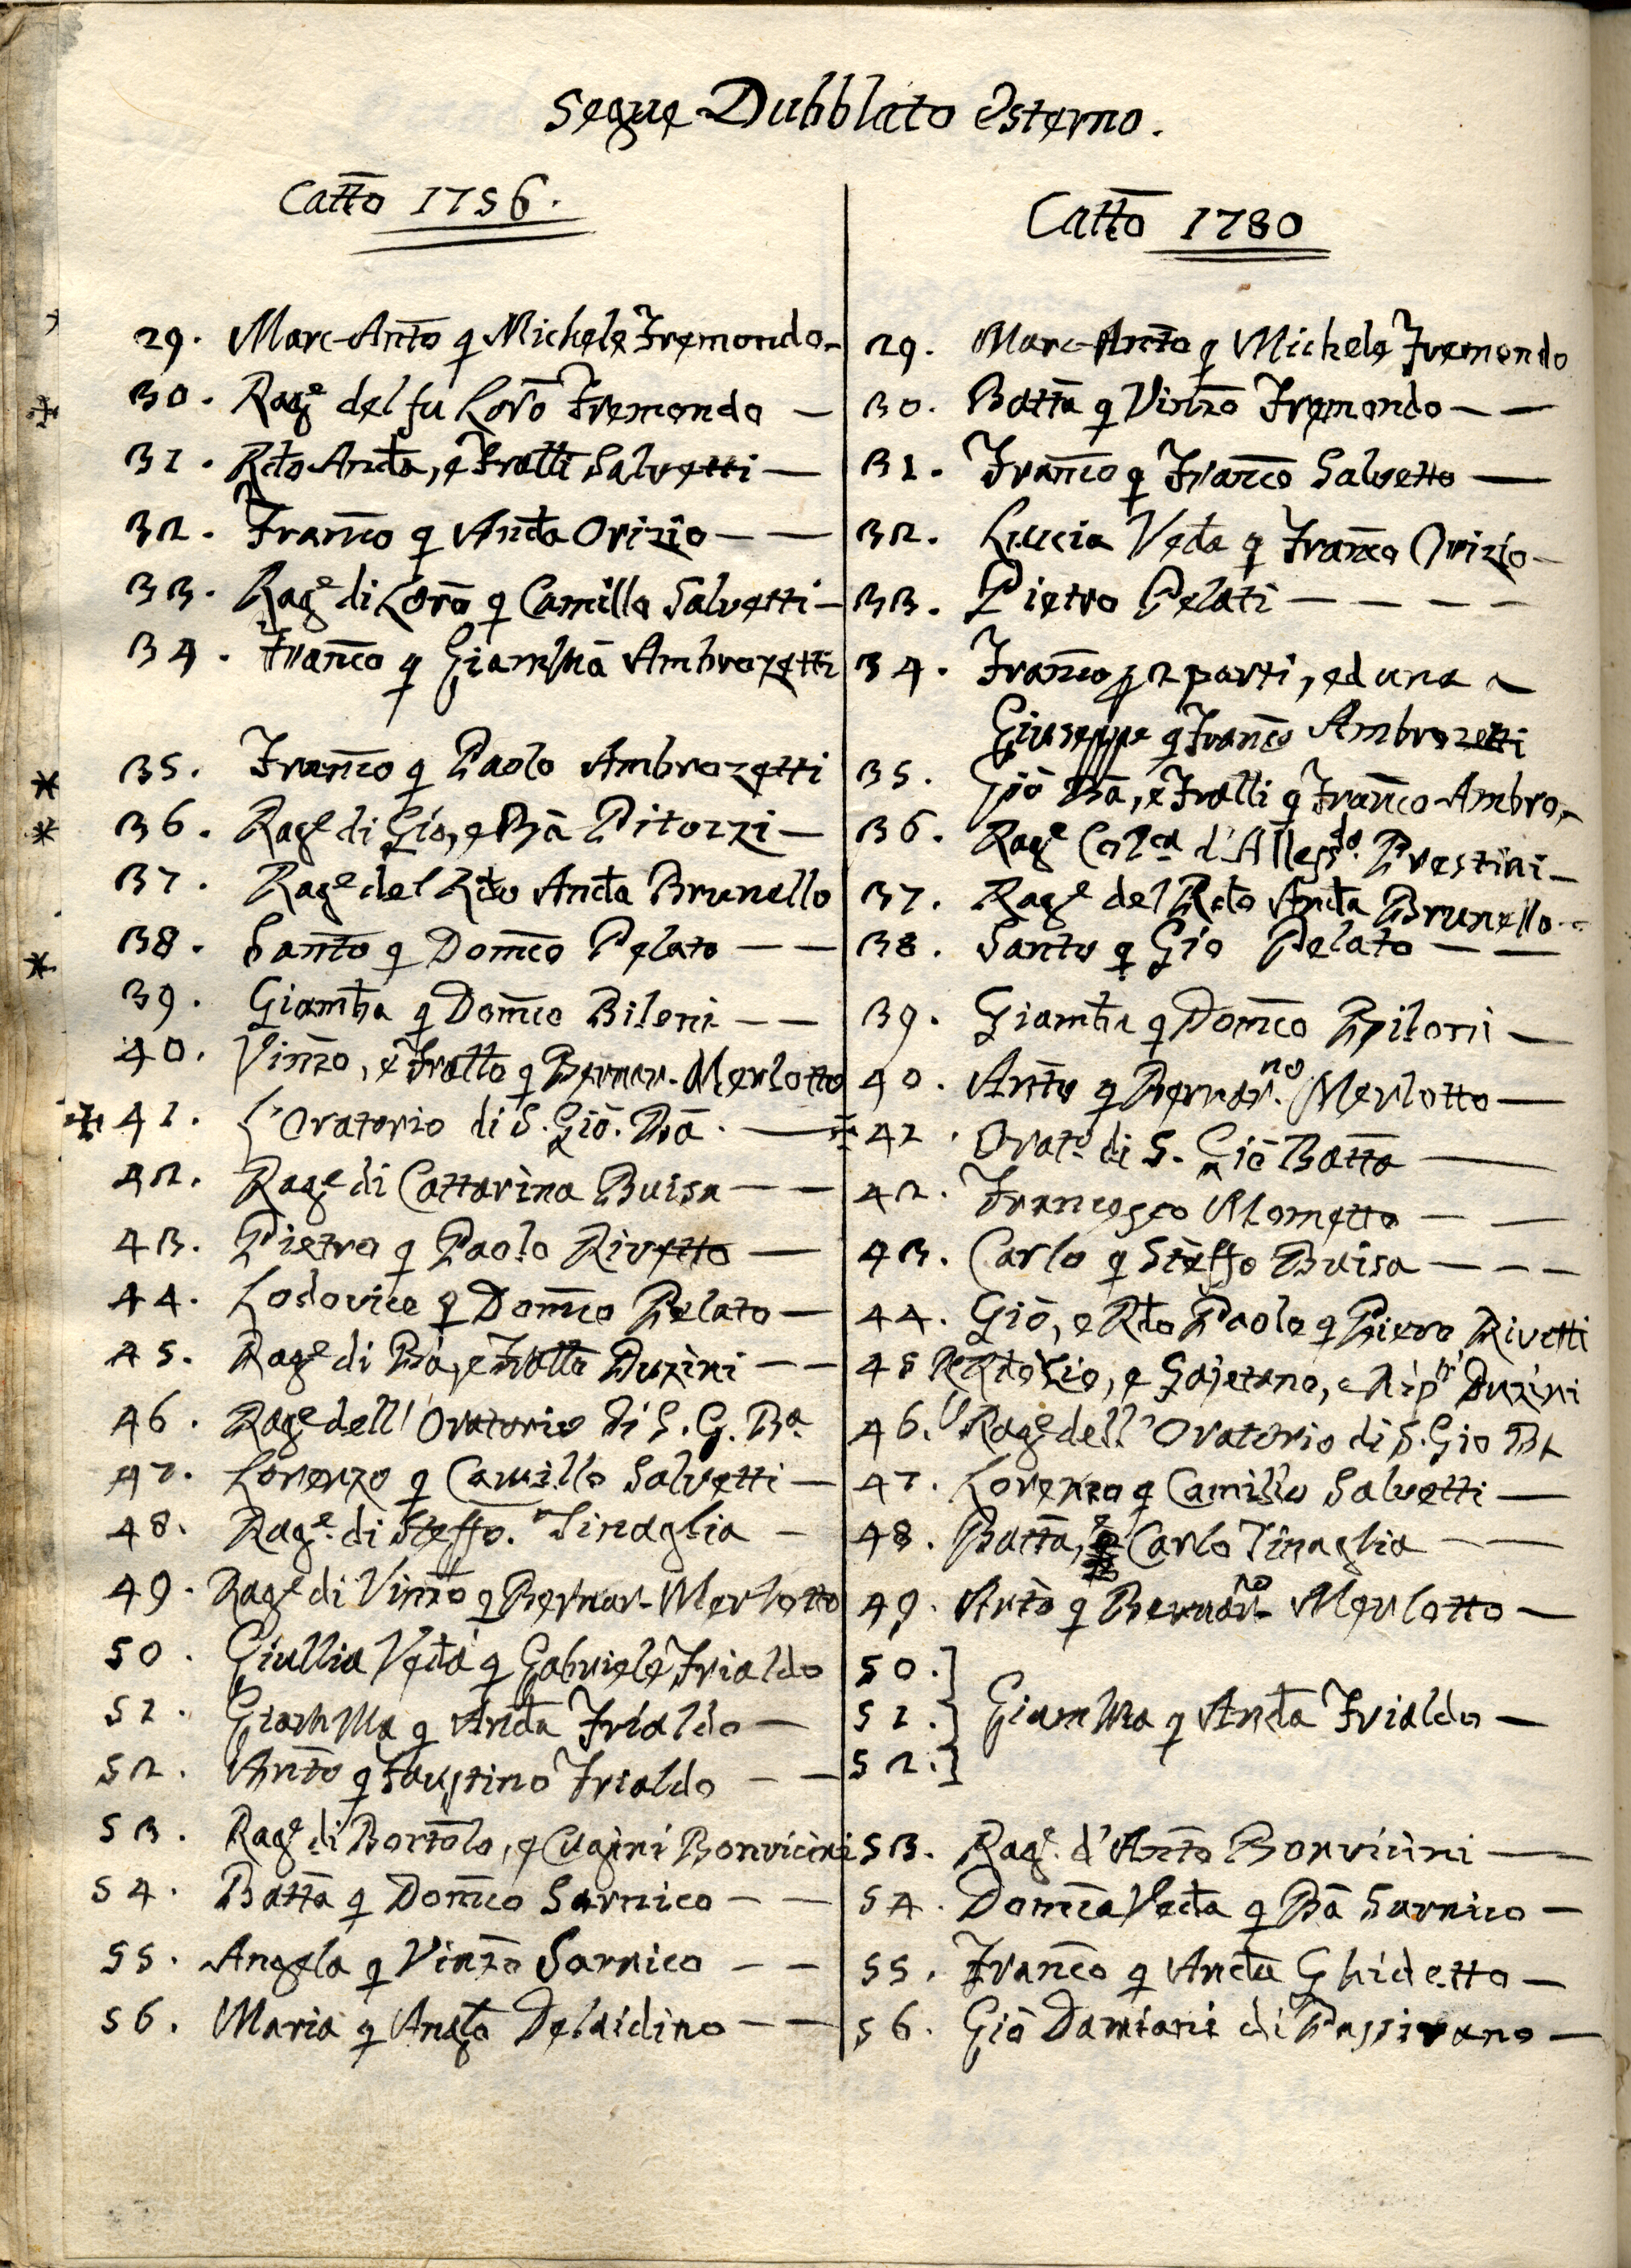 Segue Dubblato Esterno.
Cattõ 1756.
29. Marc-Antõ q Michele Fremondo-
30. Rage del fu Lorõ Fremondo —
31. Rdo Anda, e Fratti Salvetti —
32. Franco q Anda Orizio — —
33. Rage di Lorõ q Camillo Salvetti —
34. Franco q Giamba Ambrozetti
35. Franco q Paolo Ambrozetti
36. Rage di Gio, e Bã Pitozzi —
37. Rage del Rdo Anda Brunello
38. Santo q Domco Pelato — —
39. Giamba q Domco Biloni — —
40. Vinzo, e Fratto q Bernar. Merlotto
41. L'Oratorio di S. Giõ. Bã. —
42. Rage di Cattarina Buisa — —
43. Pietro q Paolo Rivetto —
44. Lodovico q Domco Pelato —
45. Rage di Bã, e Fratto Duzini — —
46. Rage dell'Oratorio di S. G. Ba
47. Lorenzo q Camillo Salvetti —
48. Rage di Steffo. Tinaglia —
49. Rage di Vinzo q Bernar- Merlotto
50. Giullia Veda q Gabriele Frialdo
51. Giamba q Anda Frialdo —
52. Anto q Faustino Frialdo — —
53. Rage di Bortolo, e Cugini Bonvicini
54. Batta q Domco Sarnico — —
55. Angela q Vinzo Sarnico — —
56. Maria q Anglo Deldidino — —
Cattõ 1780
29. Marc-Anto q Michele Fremondo
30. Batta q Vinzo Fremondo — —
31. Franco q Franco Salvetto —
32. Lucia Veda q Franco Orizio —
33. Pietro Pelati — — — —
34. Franco p 2 parti, ed una a
Giuseppe q Franco Ambrozetti
35. Giõ Bã, e Fratti q Franco Ambro.
36. Rage d'Allesdo. Prestini —
37. Rage del Rdo Anda Brunello
38. Santo q Gio Pelato — —
39. Giamba q Domco Biloni —
40. Anto q Bernar.no Merlotto —
41. Orato di S. Giõ Batta —
42. Francesco Mometto — —
43. Carlo q Steffo Buisa — — —
44. Giõ, e Rdo Paolo q Piero Rivetti
45 Rdo Gio, e Gajetano, e Nipti Duzini
46. Rage dell'Oratorio di S. Gio Ba
47. Lorenzo q Camillo Salvetti —
48. Batta, e Carlo Tinaglia — —
49. Anto q Bernar-no Merlotto —
50.]
51.} Giamba q Anda Frialdo —
52.]
53. Rage. d'Anto Bonvicini —
54. Domca Veda q Bã Sarnico —
55. Franco q Anda Ghidetto —
56. Giõ Damiani di Passirano —